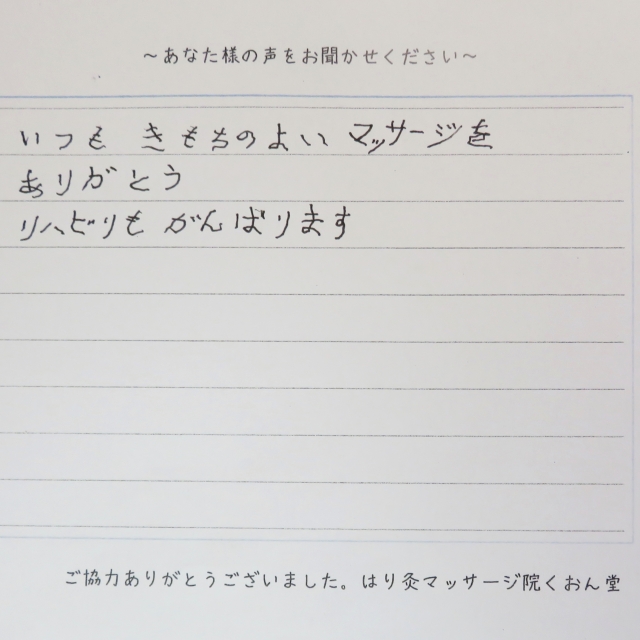 ～あなた様の声をお聞かせください～
いつも きもちのよい マッサージを
ありがとう
リハビリも がんばります
ご協力ありがとうございました。はり灸マッサージ院くおん堂